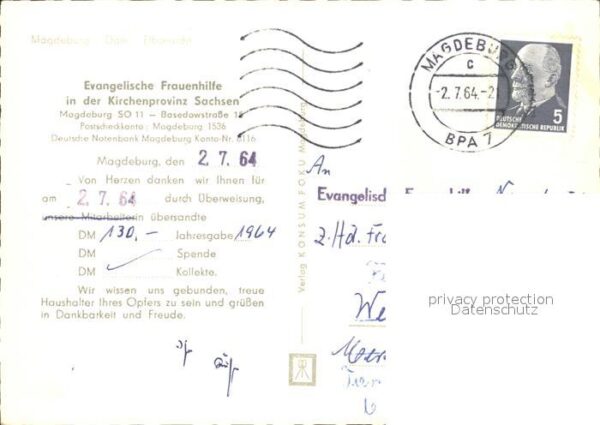 Magdeburg Dom Elbansicht
Evangelische Frauenhilfe
in der Kirchenprovinz Sachsen
Magdeburg SO 11 — Basedowstraße
Postscheckkonto: Magdeburg 1536
Deutsche Notenbank Magdeburg Konto-Nr. 8116
Magdeburg, den 2. 7. 64
Von Herzen danken wir Ihnen für
am 2. 7. 64 durch Überweisung,
unsere Mitarbeiterin übersandte
DM 130,- Jahresgabe 1964
DM Spende
DM Kollekte.
Wir wissen uns gebunden, treue
Haushalter Ihres Opfers zu sein und grüßen
in Dankbarkeit und Freude.
Verlag KONSUM FOKU Magdeburg
MAGDEBURG
c
-2.7.64.-2
BPA 7
5
DEUTSCHE
DEMOKRATISCHE REPUBLIK
An
Evangelisch
z. Hd. Fr
We
privacy protection
Datenschutz